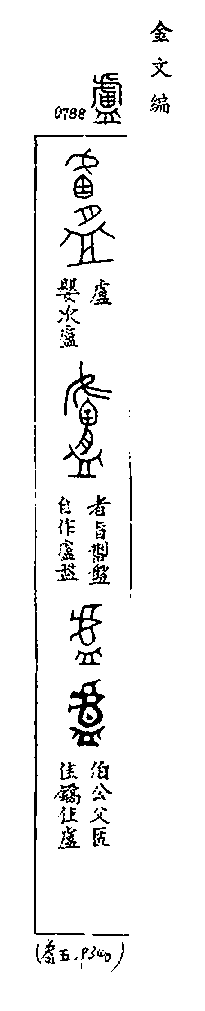 金文編
0788
盧
嬰次盧
者旨盤
自作盧盤
伯公父
隹鐈隹盧
(卷五.P340)